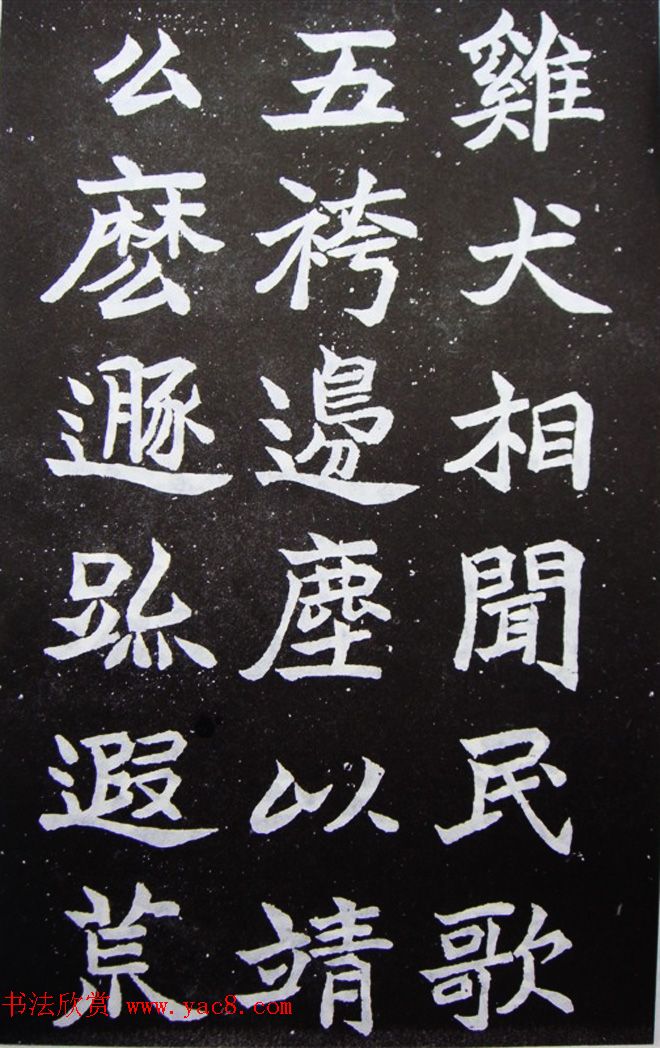 雞犬相聞民歌
五袴邊塵以靖
么麼遯跡遐荒
书法欣赏 www.yac8.com